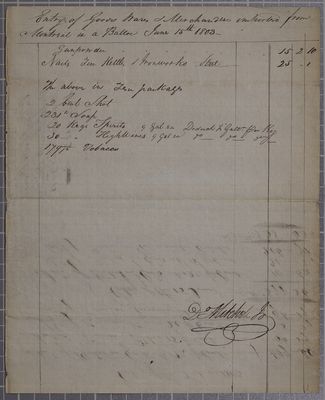 Entry of Goods Wares & Merchandize imported from
Montreal in a Batteau June 15th 1803
Gunpowder 15 2 10
Nails Tin Kettles Ironworks Steel 25 - 1
The above in Ten packages
2 bbl Shot
231 lb Soap
20 Kegs Spirits 9 Gal ea Deduct
30 " Highwines 9 Gal ea do do
179 lb Tobacco
D. Mitchell Jr